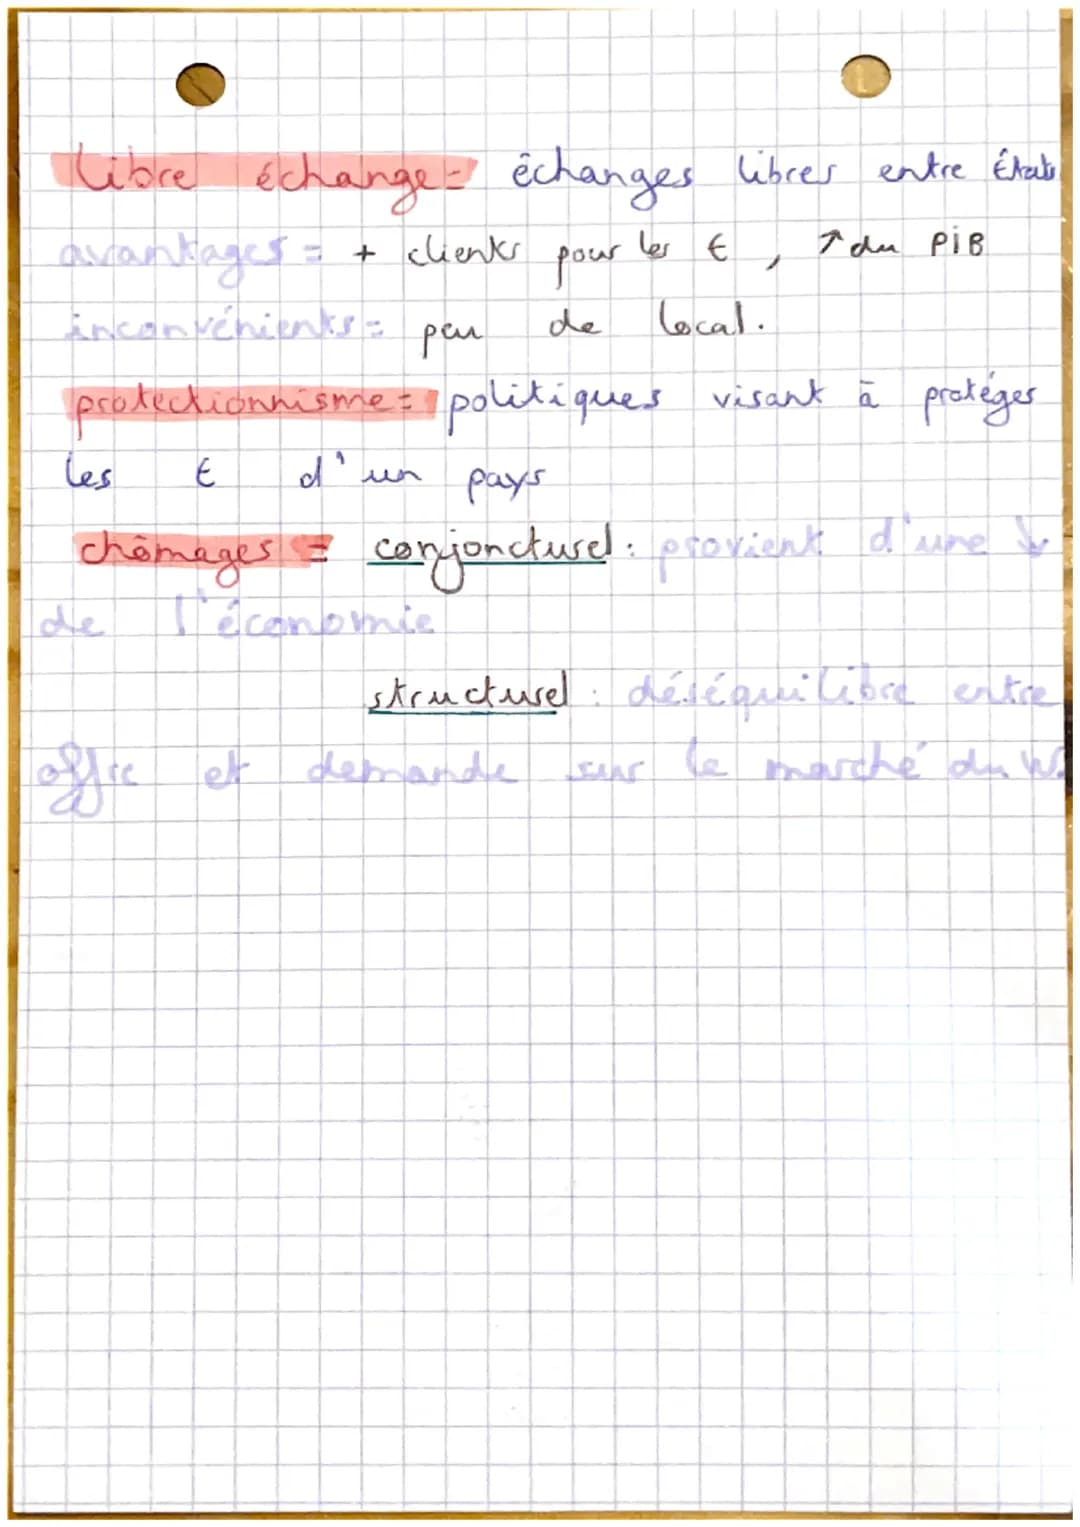 Libre échange = échanges libres entre États
avantages = + clients pour les €, ↑ du PiB
inconvénients = peu de local.
protectionnisme = politiques visant à protéger
les € d'un pays
chômages = conjoncturel : provient d'une ↓
de l'économie
structurel : déséquilibre entre
offre et demande sur le marché du W.